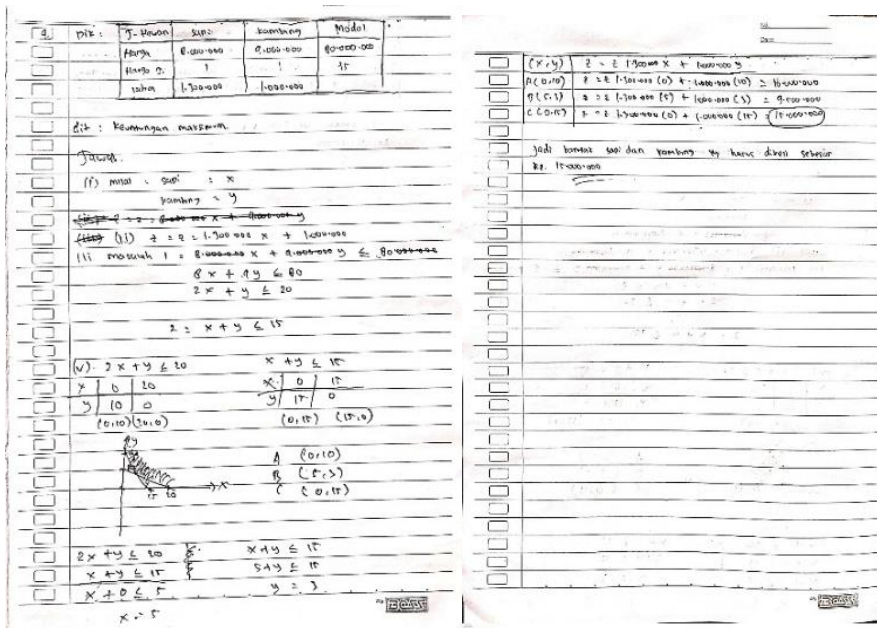 9. Dik : J. Hewan Sapi kambing Modal
Harga 8.000.000 9.000.000 90.000.000
1 1 15
1.300.000 1.000.000
dit : keuntungan maksimum
Jawab.
(i) misal : sapi : x
kambing = y
(ii) z = z = 1.300.000 x + 1.000.000
masalah 1 = 8.000.000 x + 9.000.000 y ≤ 80.000.000
8x + 9y ≤ 80
2x + y ≤ 20
2 : x + y ≤ 15
(v). 2x + y ≤ 20 x + y ≤ 15
x 0 20 x 0 15
y 10 0 y 15 0
(0,10) (20,0) (0,15) (15,0)
y
15 20 x
A (0,10)
B (5,3)
C (0,15)
2x + y ≤ 20 x + y ≤ 15
x + y ≤ 15 5 + y ≤ 15
x + 0 ≤ 5 y = 3
x = 5
No
Date
(x,y) z = z 1.300.000 x + 1.000.000 y
A (0,10) z = z 1.300.000 (0) + 1.000.000 (10) = 10.000.000
B (5,3) z = z 1.300.000 (5) + 1.000.000 (3) = 9.500.000
C (0,15) z = z 1.300.000 (0) + 1.000.000 (15) = 15.000.000
Jadi banyak sapi dan kambing yg harus dibeli sebesar
Rp. 15.000.000